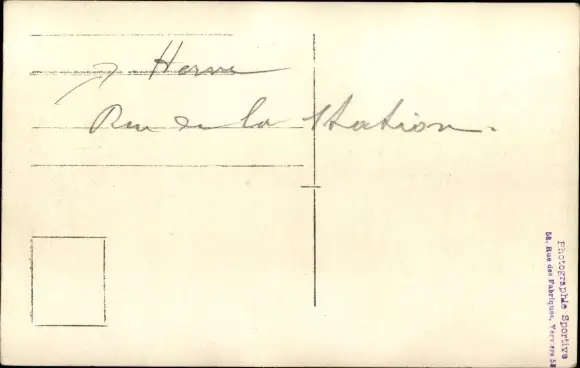 J Herve
Rue de la Station.
Photographie Sportive
58, Rue des Fabriques, Verviers 58